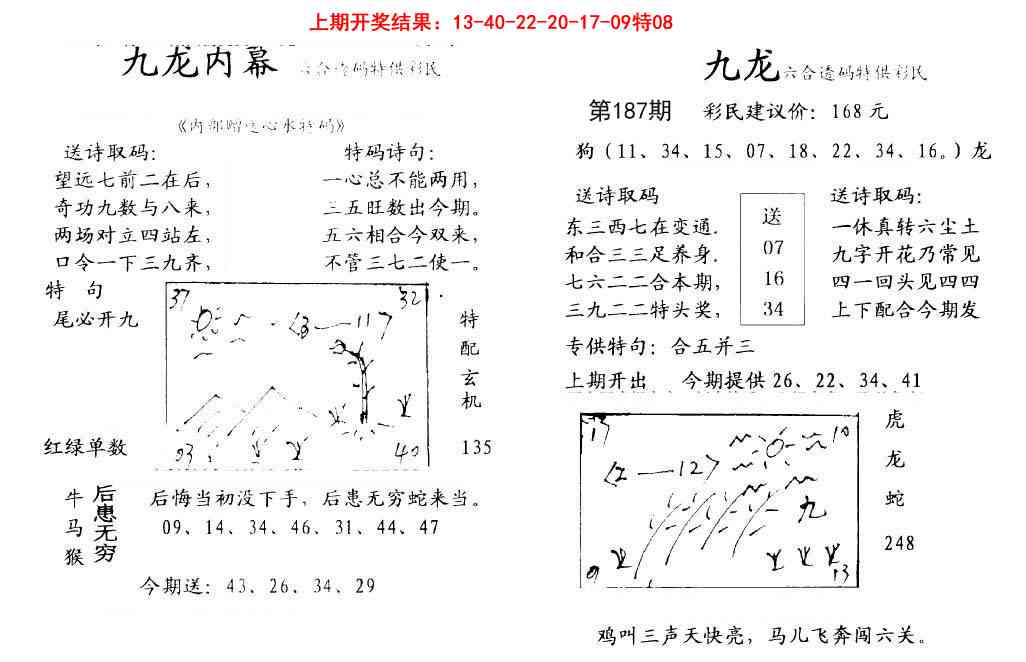 上期开奖结果：13-40-22-20-17-09特08
九龙内幕 六合透码特供彩民
《内部赠送心水特码》
送诗取码：
望远七前二在后，
奇功九数与八来，
两场对立四站左，
口令一下三九齐，
特码诗句：
一心总不能两用，
三五旺数出今期。
五六相合今双来，
不管三七二使一。
特 句
尾必开九
红绿单数
37
32
〈3—11〉
03
40
特
配
玄
机
135
牛
马
猴
后患无穷
后悔当初没下手，后患无穷蛇来当。
09、14、34、46、31、44、47
今期送：43、26、34、29
九龙六合透码特供彩民
第187期 彩民建议价：168元
狗（11、34、15、07、18、22、34、16。）龙
送诗取码
东三西七在变通．
和合三三足养身．
七六二二合本期，
三九二二特头奖，
送
07
16
34
送诗取码：
一休真转六尘土
九字开花乃常见
四一回头见四四
上下配合今期发
专供特句：合五并三
上期开出 今期提供26、22、34、41
13
10
〈2—12〉
九
9
13
虎
龙
蛇
248
鸡叫三声天快亮，马儿飞奔闯六关。